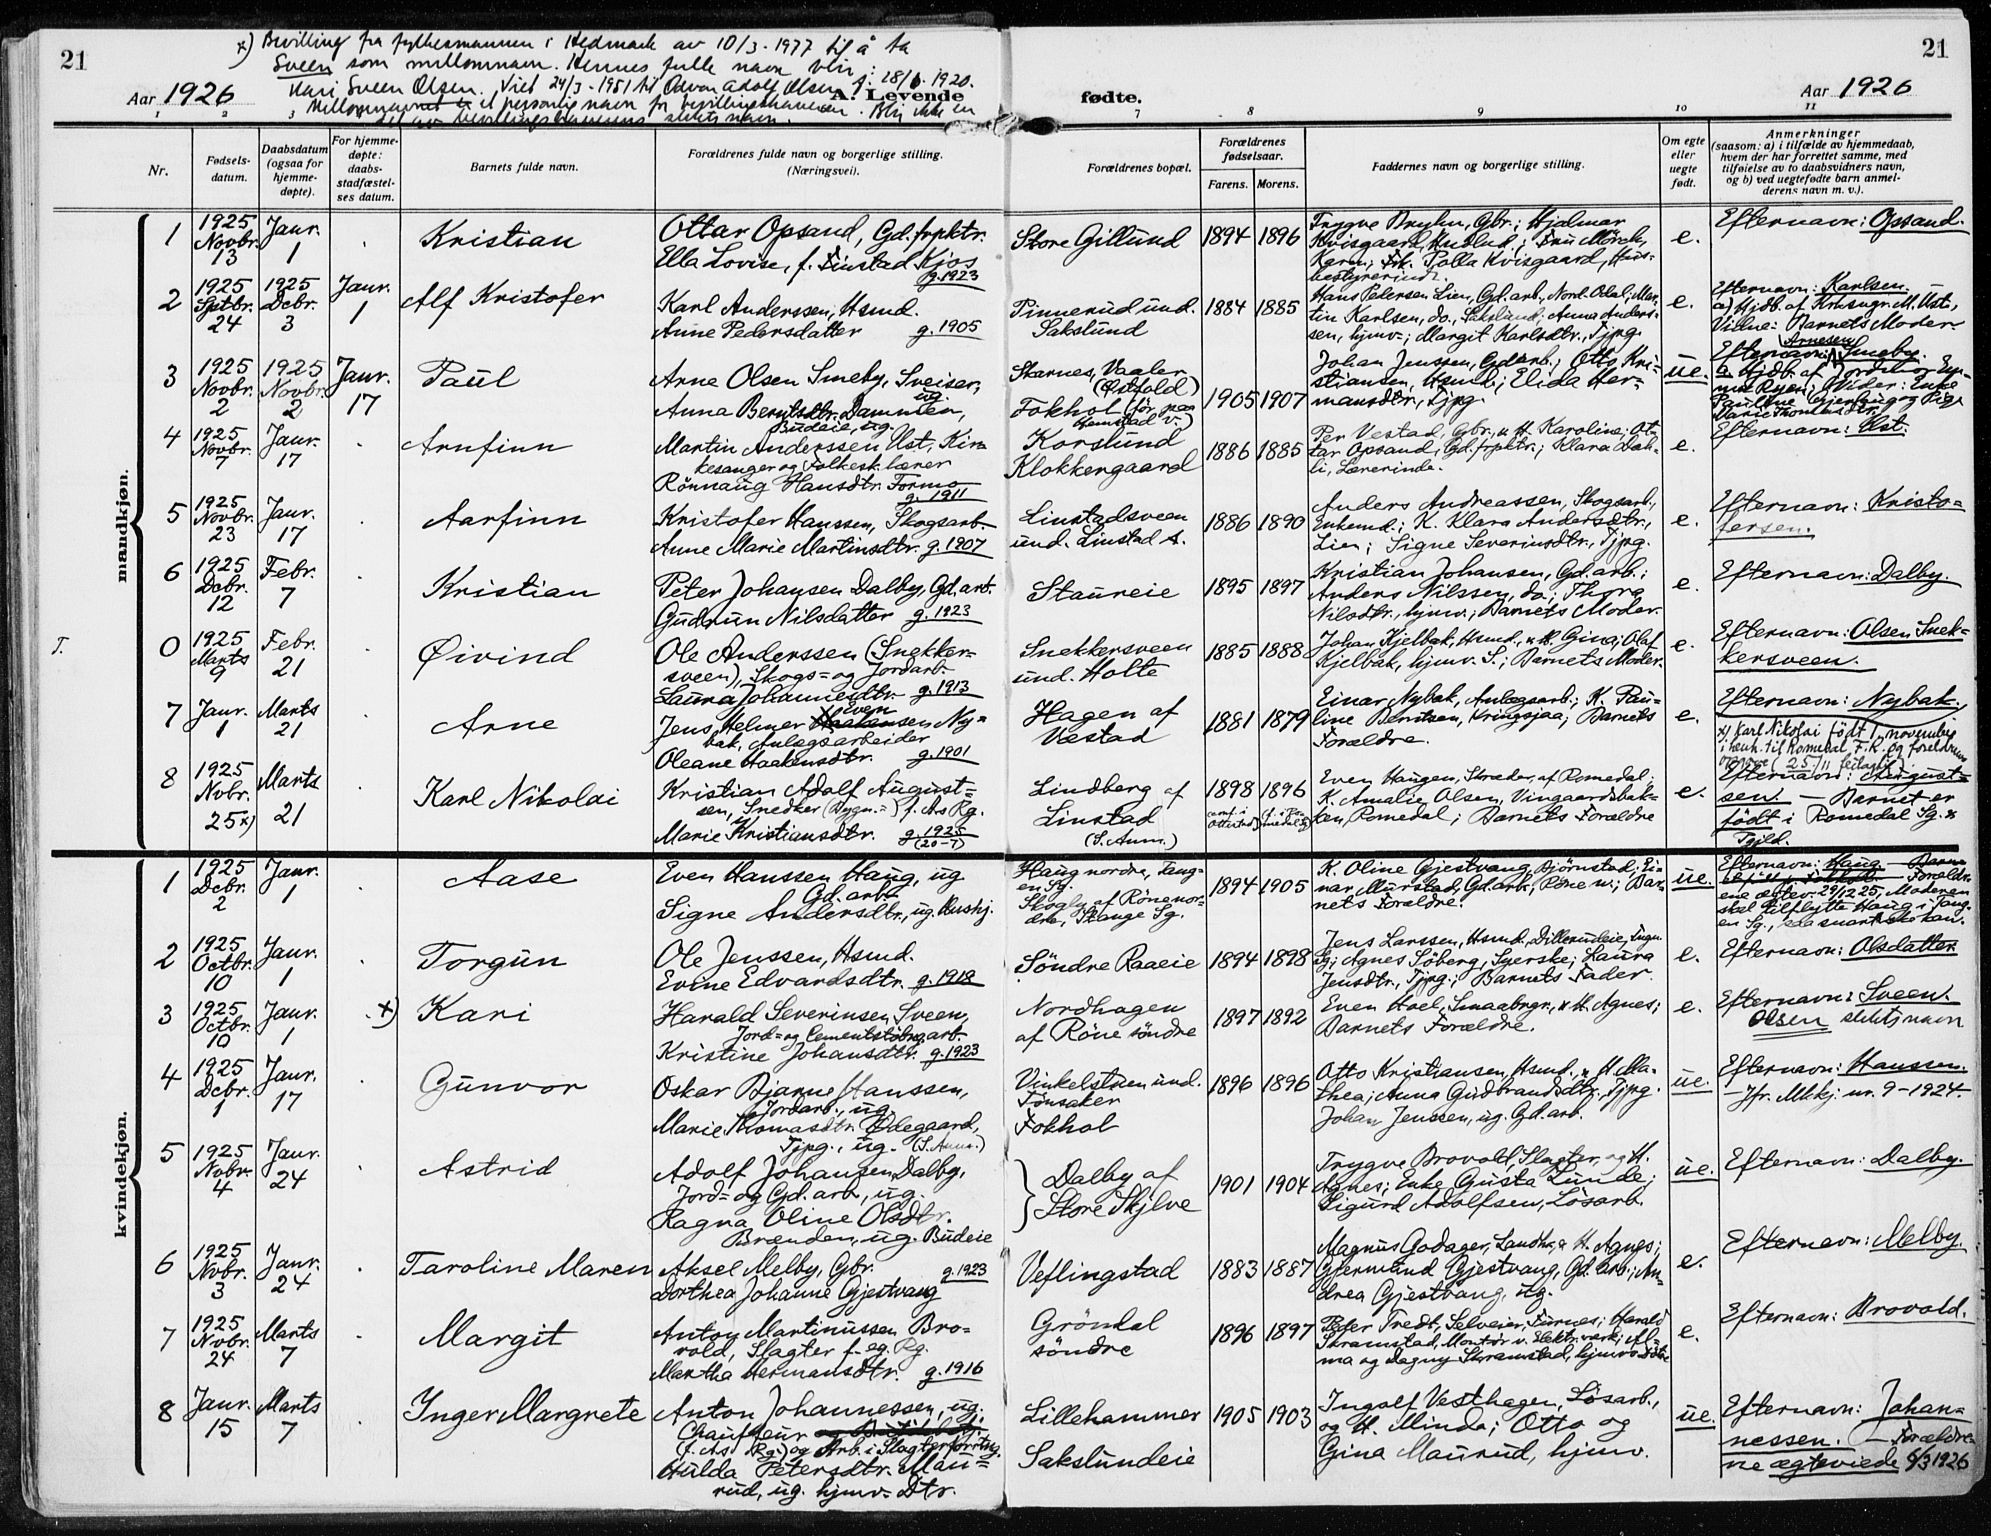 21
x) Bevilling fra fylkesmannen i Hedmark av 10/3-1977 til å ta
Sveen som mellomnavn. Hennes fulle navn blir:
Kari Sveen Olsen. Viet 24/3-1951 til Odvar Adolf Olsen f. 28/6-1920.
Mellomnavnet er et personlig navn for bevillingshaveren. Blir ikke en
del av bevillingshaverens slektsnavn.
21
Aar 1926
A. Levende
fødte.
Aar 1926
1 2 3 7 8 9 10 11
Nr.
Fødsels-
datum.
Daabsdatum
(ogsaa for
hjemme-
døpte).
For hjemme-
døpte:
daabs-
stadfæstel-
ses datum.
Barnets fulde navn.
Forældrenes fulde navn og borgerlige stilling.
(Næringsvei).
Forældrenes bopæl.
Forældrenes
fødselsaar.
Farens. Morens.
Faddernes navn og borgerlige stilling.
Om egte
eller
uegte
født.
Anmerkninger
(saasom: a) i tilfælde av hjemmedaab,
hvem der har forrettet samme, med
tilføielse av to daabsvidners navn,
og b) ved uegtefødte barn anmel-
derens navn m. v.).
mandkjøn.
1
1925
Novbr.
13
Janr.
1
Kristian
Ottar Opsand, Gd.frpktr.
Ella Lovise, f. Finstad Kjos
g.1923
Store Gillund
1894 1896
Trygve Bryhn, Gbr.; Hjalmar
Kvisgaard, ; Fru Mörch,
Karen; Frk. Polla Kvisgaard, Hus-
bestyrerinde.
e.
Efternavn: Opsand.
2
1925
Septbr.
24
1925
Dcbr.
3
Janr.
1
Alf Kristofer
Karl Anderssen, Hsmd.
Anne Pedersdatter g.1905
Pinnerud und.
Sakslund
1884 1885
Hans Pedersen Lien, Gd.arb., Nord. Odal; Mar-
tin Karlsen, do., Sakslund; Anna Anders-
sen, hjmv.; Margit Karlsdtr., Tjpg.
e.
Efternavn: Karlsen.
a) Hjdb. af Krksngr. M. Ust,
Vidne: Barnets Moder
3
1925
Novbr.
2
1925
Novbr.
2
Janr.
17
Paul
Arne Olsen Smeby, Sveiser,
ug.
Anna Berntsdtr. Dammen,
Budeie, ug.
Starnes, Vaaler
(Østfold)
Fokhol (før paa
Hemstad v.)
1905 1907
Johan Jenssen, Gd.arb.; Otto Kri-
stiansen, Hsmd.; Elida Her-
mansdtr., Tjpg.
ue.
(Arnesen)
Efternavn: Smeby.
a. Hjdb. af Jordmor
Ryen; Vider: Enke
Pauline Gjerhaug og Pige
Marie Thomasdtr.
4
1925
Novbr.
7
Janr.
17
Arnfinn
Martin Anderssen Ust, Kir-
kesanger og Folkesk.lærer
Rönnaug Hansdtr. Formo
g. 1911
Korslund
Klokkergaard
1886 1885
Per Vestad, Gbr., u. H. Karoline; Ot-
tar Opsand, Gd.frpktr.; Klara Dah-
li, Lærerinde.
e.
Efternavn: Ust.
5
1925
Novbr.
23
Janr.
17
Aarfinn
Kristofer Hanssen, Skogsarb.
Anne Marie Martinsdtr. g.1907
Linstadsveen
und. Linstad s.
1886 1890
Anders Andreassen, Skogsarb.,
Enkemd.; K. Klara Andersdtr.,
Lien; Signe Severinsdtr., Tjpg.
e.
Efternavn: Kristo-
fersen.
6
1925
Dcbr.
12
Febr.
7
Kristian
Peter Johansen Dalby, Gd.arb.
Gudrun Nilsdatter g.1923
Staureie
1895 1897
Kristian Johansen, Gd.arb.;
Anders Nilssen, do.; Thora
Nilsdtr., hjmv.; Barnets Moder.
e.
Efternavn: Dalby.
T.
0
1925
Marts
9
Febr.
21
Øivind
Ole Anderssen (Snekker-
sveen), Skogs= og Jordarb.
Laura Johannesdtr. g.1913
Snekkersveen
und. Holte
1885 1888
Johan Kjelbak, Hsmd., u. H. Gina; Olaf
Kjelbak, hjmv. S.; Barnets Moder.
e.
Efternavn: Olsen Snek-
kersveen.
7
Janr.
1
Marts
21
Arne
Even
Jens Helmer Haakensen Ny-
bak, Anlægsarbeider
Oleane Haakensdtr. g.1901
Hagen af
Væstad
1881 1879
Einar Nybak, Anlægsarb.; K. Pau-
line Berntsen, Kringsjaa; Barnets
Forældre.
e.
Efternavn: Nybak.
x) Karl Nikolai født 1. november
i henh. til Romedal F.R. og foreldrenes
oppgave (25/11 feilaktig).
8
1925
Nvbr.
25x)
Marts
21
Karl Nikolai
Kristian Adolf August-
sen, Snedker (Bygn.=) f. As Rg.
Marie Kristiansdtr. g.1925
(20-7)
Lindberg af
Linstad
(S. Anm.)
1898 1896
Even Haugen, Skræder, af Romedal;
K. Amalie Olsen, Vingaardsbak-
ken, Romedal; Barnets Forældre
e.
Efternavn: August-
sen. — Barnet er
født i Romedal Sg. &
Pgjld.
kvindekjøn.
1
1925
Dcbr.
2
Janr.
1
Aase
Even Hanssen Haug, ug
Gd.arb.
Signe Andersdtr., ug. Hushj.
Haug nordre, Tang-
en Sg.
Skogly af Röne nor-
dre, Stange Sg.
1894 1905
K. Oline Gjestvang, Bjørnstad; Ei-
nar Murstad, Gd.arb., Röne n.; Bar-
nets Forældre.
ue.
Efternavn: Haug
Forældre-
ne ægteviet 29/12 25, Moderen
skal tilflytte Haug i Tang-
en Sg., saa snart ske kan.
2
1925
Octbr.
10
Janr.
1
Torgun
Ole Jenssen, Hsmd.
Evine Edvardsdtr. g.1918
Söndre Raaeie
1894 1898
Jens Larssen, Hsmd., Dillerudeie, Tngn.
Sg; Agnes Söberg, Syerske; Laura
Jensdtr., Tjpg.; Barnets Fader.
e.
Efternavn: Olsdatter.
3
1925
Octbr.
10
Janr.
1
x)
Kari
Harald Severinsen Sveen,
Jord= og Cementstøbng.arb.
Kristine Johansdtr. g.1923
Nordhagen
af Röne söndre
1897 1892
Even Hoel, Smaabrgr., u. H. Agnes;
Barnets Forældre.
e.
Efternavn: Sveen.
Olsen slektsnavn
4
1925
Dcbr.
1
Janr.
17
Gunvor
Oskar Bjarne Hanssen,
Jordarb., ug.
Marie Thomasdtr. Ødegaard,
Tjpg., ug. (S. Anm.)
Vinkelstuen und.
Tönsaker
Fokhol
1896 1896
Otto Kristiansen, Hsmd., u. H. Ma-
thea; Anna Gudbrandsdtr., Tjpg.
Johan Jenssen, ug. Gd.arb.
ue.
Efternavn: Hanssen.
— Jfr. Mkkj. nr. 9-1924.
5
1925
Nvbr.
4
Janr.
24
Astrid
Adolf Johansen Dalby,
Jord= og Gd.arb., ug.
Ragna Oline Olsdtr.
Brænden, ug. Budeie
Dalby af
Store Skjelve
1901 1904
Trygve Brovold, Slagter, og H.
Agnes; Enke Gusta Lunde;
Sigurd Adolfsen, Lösarb.
ue.
Efternavn: Dalby.
6
1925
Nvbr.
3
Janr.
24
Taroline Maren
Aksel Melby, Gbr.
g.1923
Dorthea Johanne Gjestvang
Veflingstad
1883 1887
Magnus Godager, Landh., u. H. Agnes;
Gjermund Gjestvang, Gd.arb.; An-
drea Gjestvang, ug.
e.
Efternavn: Melby.
7
1925
Novbr.
24
Marts
7
Margit
Anton Martinussen Bro-
vold, Slagter f. eg. Rg.
Martha Hermansdtr. g.1916
Gröndal
söndre
1896 1897
Peter Tredt, Selveier, Furnes; Harald
Skramstad, Montör v. Elektr.verk; Al-
ma og Dagny Skramstad, hjmv.
e.
Efternavn: Brovold.
8
Janr.
15
Marts
7
Inger Margrete
Anton Johannessen, ug.
Chauffeur
(f. As Rg.) og Arb. i Slagterforretng.
Hulda Petersdtr. Mau-
rud, ug. hjmv. Dtr.
Lillehammer
Sakslundeie
1905 1903
Ingolf Vesthagen, Lösarb.,
og H. Minda; Otto og
Gina Maurud, hjmv.
ue.
Efternavn: Johan-
nessen. — Forældre-
ne ægteviede 6/3 1926